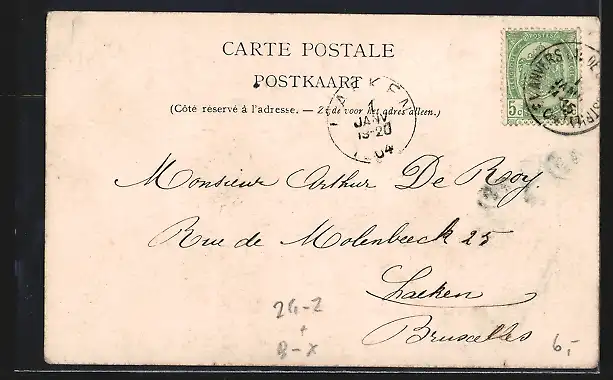 CARTE POSTALE
POSTKAART
(Côté réservé à l'adresse. — Zijde voor het adres alleen.)
LAEKEN
1
JANV
19-20
1904
POSTES
5 c
ANVERS
Monsieur Arthur De Roy.
Rue de Molenbeeck 25
Laeken
Bruxelles
2G-Z
+
B-X
6,-